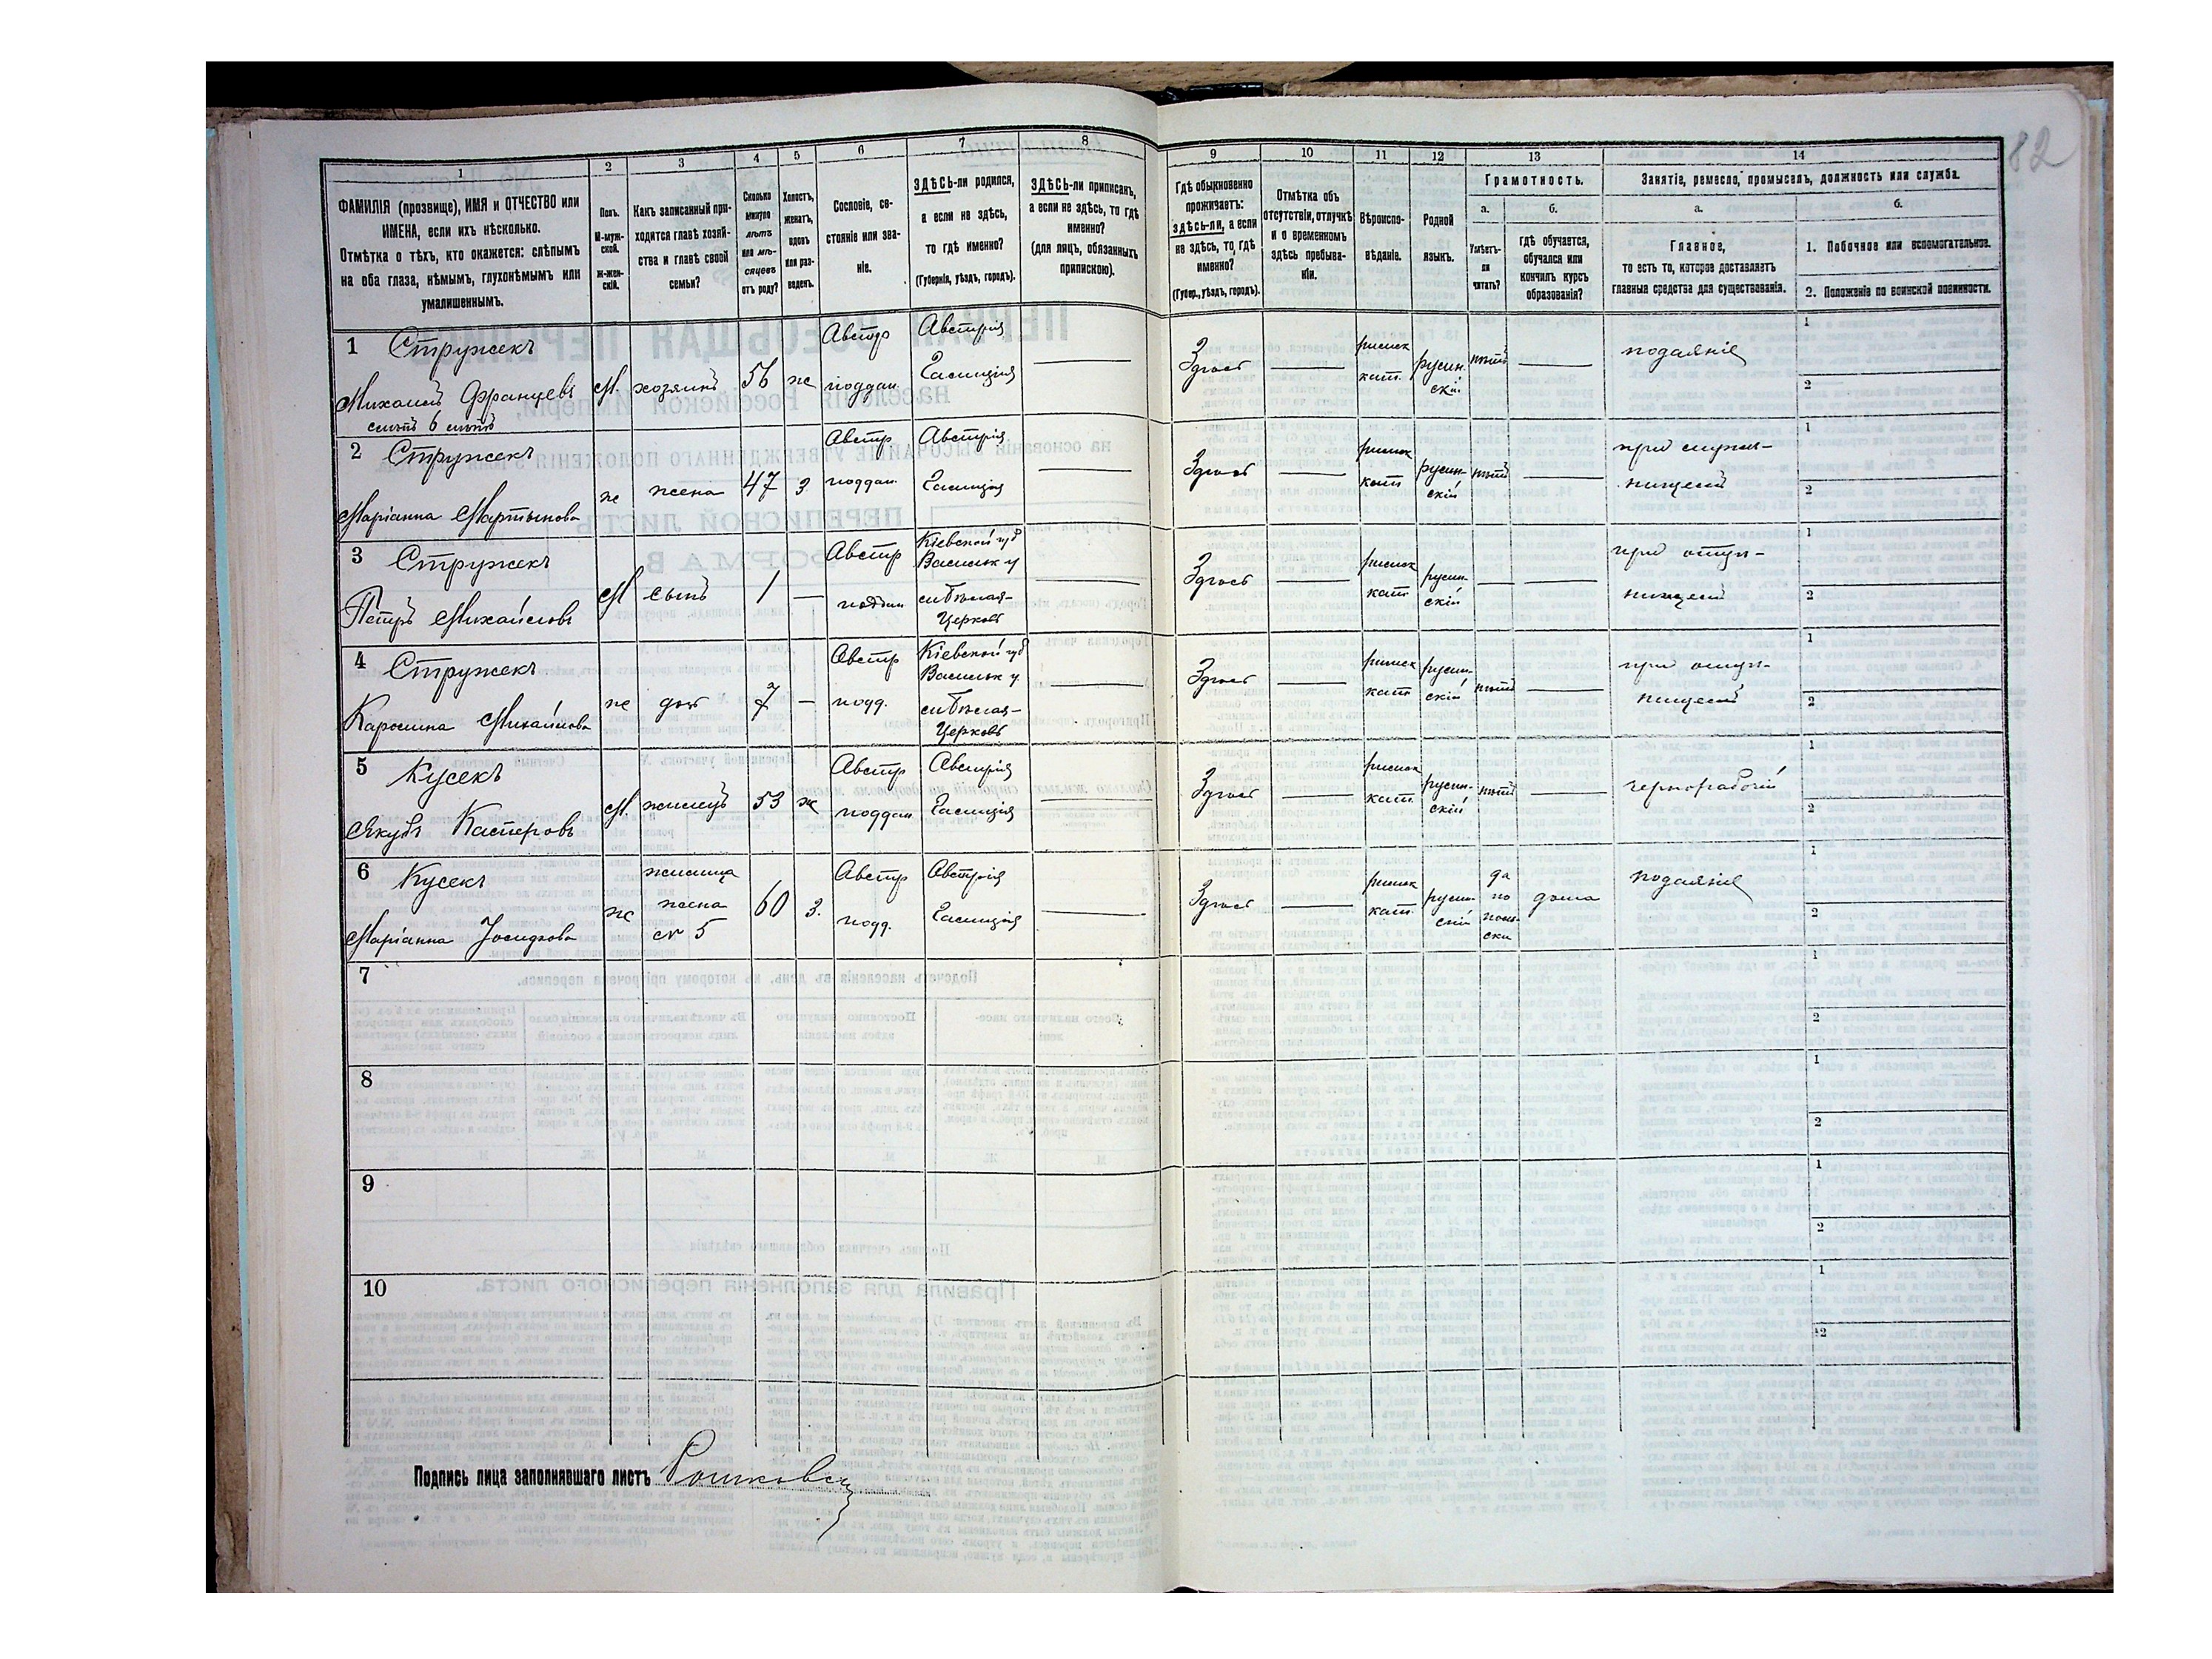 82
1
2
3
4
5
6
7
8
9
10
11
12
13
14
ФАМИЛІЯ (прозвище), ИМЯ и ОТЧЕСТВО или
ИМЕНА, если ихъ нѣсколько.
Отмѣтка о тѣхъ, кто окажется: слѣпымъ
на оба глаза, нѣмымъ, глухонѣмымъ или
умалишеннымъ.
Полъ.
М-муж-
ской.
Ж-жен-
скій.
Какъ записанный при-
ходится главѣ хозяй-
ства и главѣ своей
семьи?
Сколько
минуло
лѣтъ
или мѣ-
сяцевъ
отъ роду?
Холостъ,
женатъ,
вдовъ
или раз-
веденъ.
Сословіе, со-
стояніе или зва-
ніе.
ЗДѢСЬ-ли родился,
а если не здѣсь,
то гдѣ именно?
(Губернія, уѣздъ, городъ).
ЗДѢСЬ-ли приписанъ,
а если не здѣсь, то гдѣ
именно?
(для лицъ, обязанныхъ
припискою).
Гдѣ обыкновенно
проживаетъ:
здѣсь-ли, а если
не здѣсь, то гдѣ
именно?
(Губер., уѣздъ, городъ).
Отмѣтка объ
отсутствіи, отлучкѣ
и о временномъ
здѣсь пребыва-
ніи.
Вѣроиспо-
вѣданіе.
Родной
языкъ.
Грамотность.
а.
Умѣетъ-
ли
читать?
б.
гдѣ обучается,
обучался или
кончилъ курсъ
образованія?
Занятіе, ремесло, промыселъ, должность или служба.
а.
Главное,
то есть то, которое доставляетъ
главныя средства для существованія.
б.
1. Побочное или вспомогательное.
2. Положеніе по воинской повинности.
1 Стружекъ
Михаилъ Францевъ
слѣпъ 6 лѣтъ
М. хозяинъ 56 ж
Австр поддан.
Австрія Галиція
Здѣсь
римск кат.
русин-скій
нѣтъ
подаяніе
1
2
2 Стружекъ
Маріанна Мартынова
ж жена 47 З.
Австр поддан.
Австрія Галиція
Здѣсь
римск кат
русин-скій
нѣтъ
нищей
1
2
3 Стружекъ
Петръ Михайловъ
М сынъ 1 —
Австр поддан
Кіевской губ
Васильк у
Бѣлая-
Церковь
Здѣсь
римск кат
русин-скій
при отцѣ-
нищемъ
1
2
4 Стружекъ
Каролина Михайлова
ж доч 7 —
Австр подд.
Кіевской губ
Васильк у.
Бѣлая-
Церковь
Здѣсь
римск кат
русин-скій
нѣтъ
при отцѣ-
нищемъ
1
2
5 Кусекъ
Якубъ Касперовъ
М. жилецъ 53 ж
Австр поддан
Австрія Галиція
Здѣсь
римск кат.
русин-скій
нѣтъ
чернорабочій
1
2
6 Кусекъ
Маріанна Іосифова
ж
жилица
жена
5
60 З.
Австр подд.
Австрія Галиція
Здѣсь
римск кат.
русин-скій
да
по
поль-
ски
дома
подаяніе
1
2
7
1
2
8
1
2
9
1
2
10
1
2
Подпись лица заполнявшаго листъ